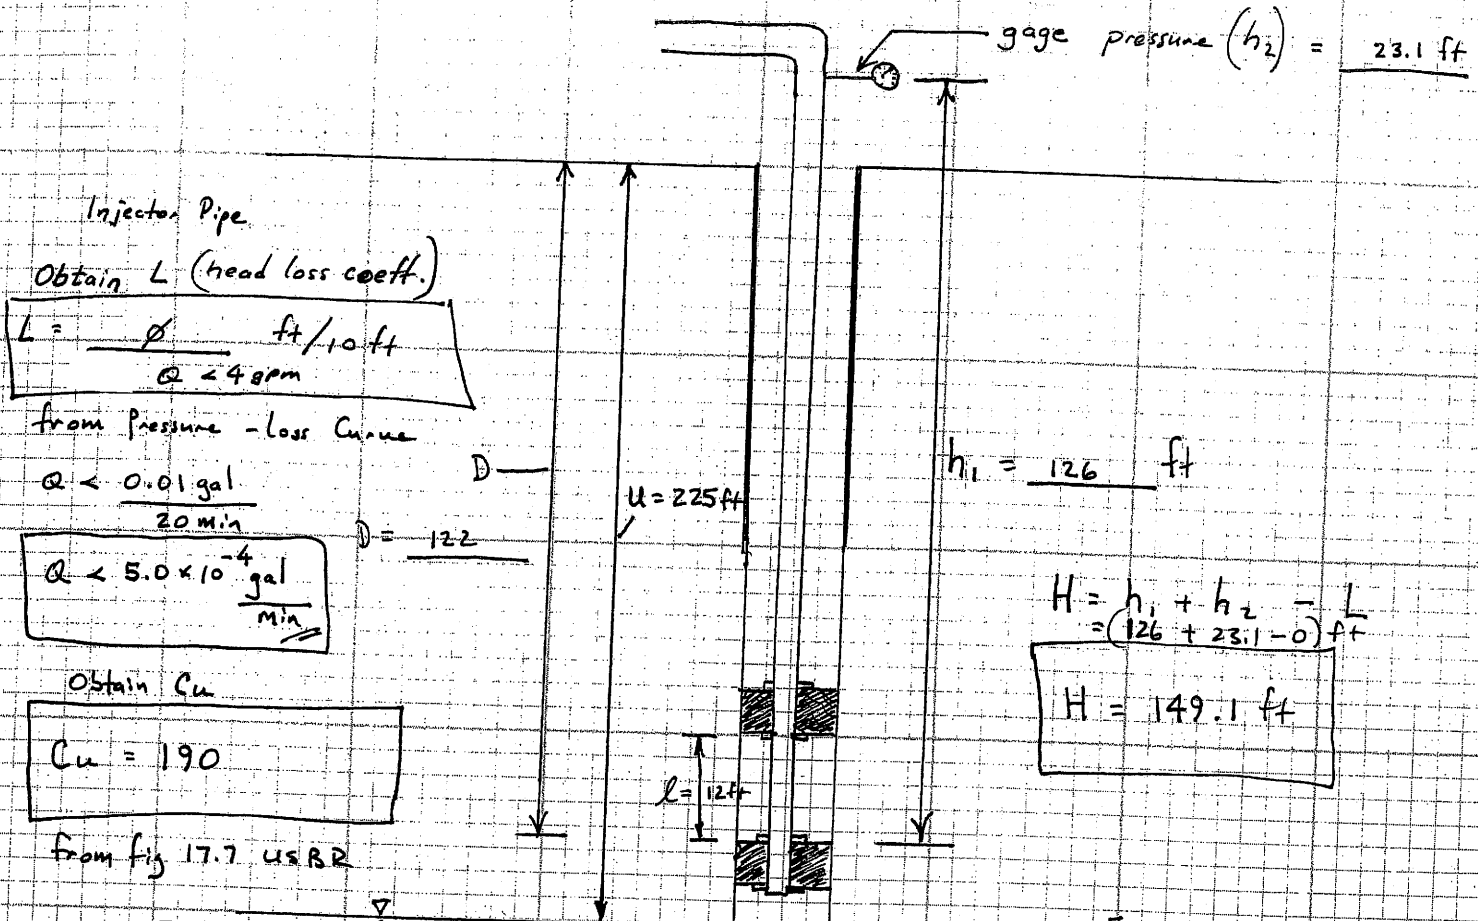 gage pressure (h₂) = 23.1 ft
Injector Pipe
Obtain L (head loss coeff.)
L = ∅ ft/10 ft
Q < 4 gpm
from Pressure - Loss Curve
Q < 0.01 gal
20 min
Q < 5.0 x 10⁻⁴ gal
min
Obtain Cu
Cu = 190
from fig 17.7 USBR
D
D = 122
U = 225 ft
l = 12 ft
h₁ = 126 ft
H = h₁ + h₂ - L
= (126 + 23.1 - 0) ft
H = 149.1 ft